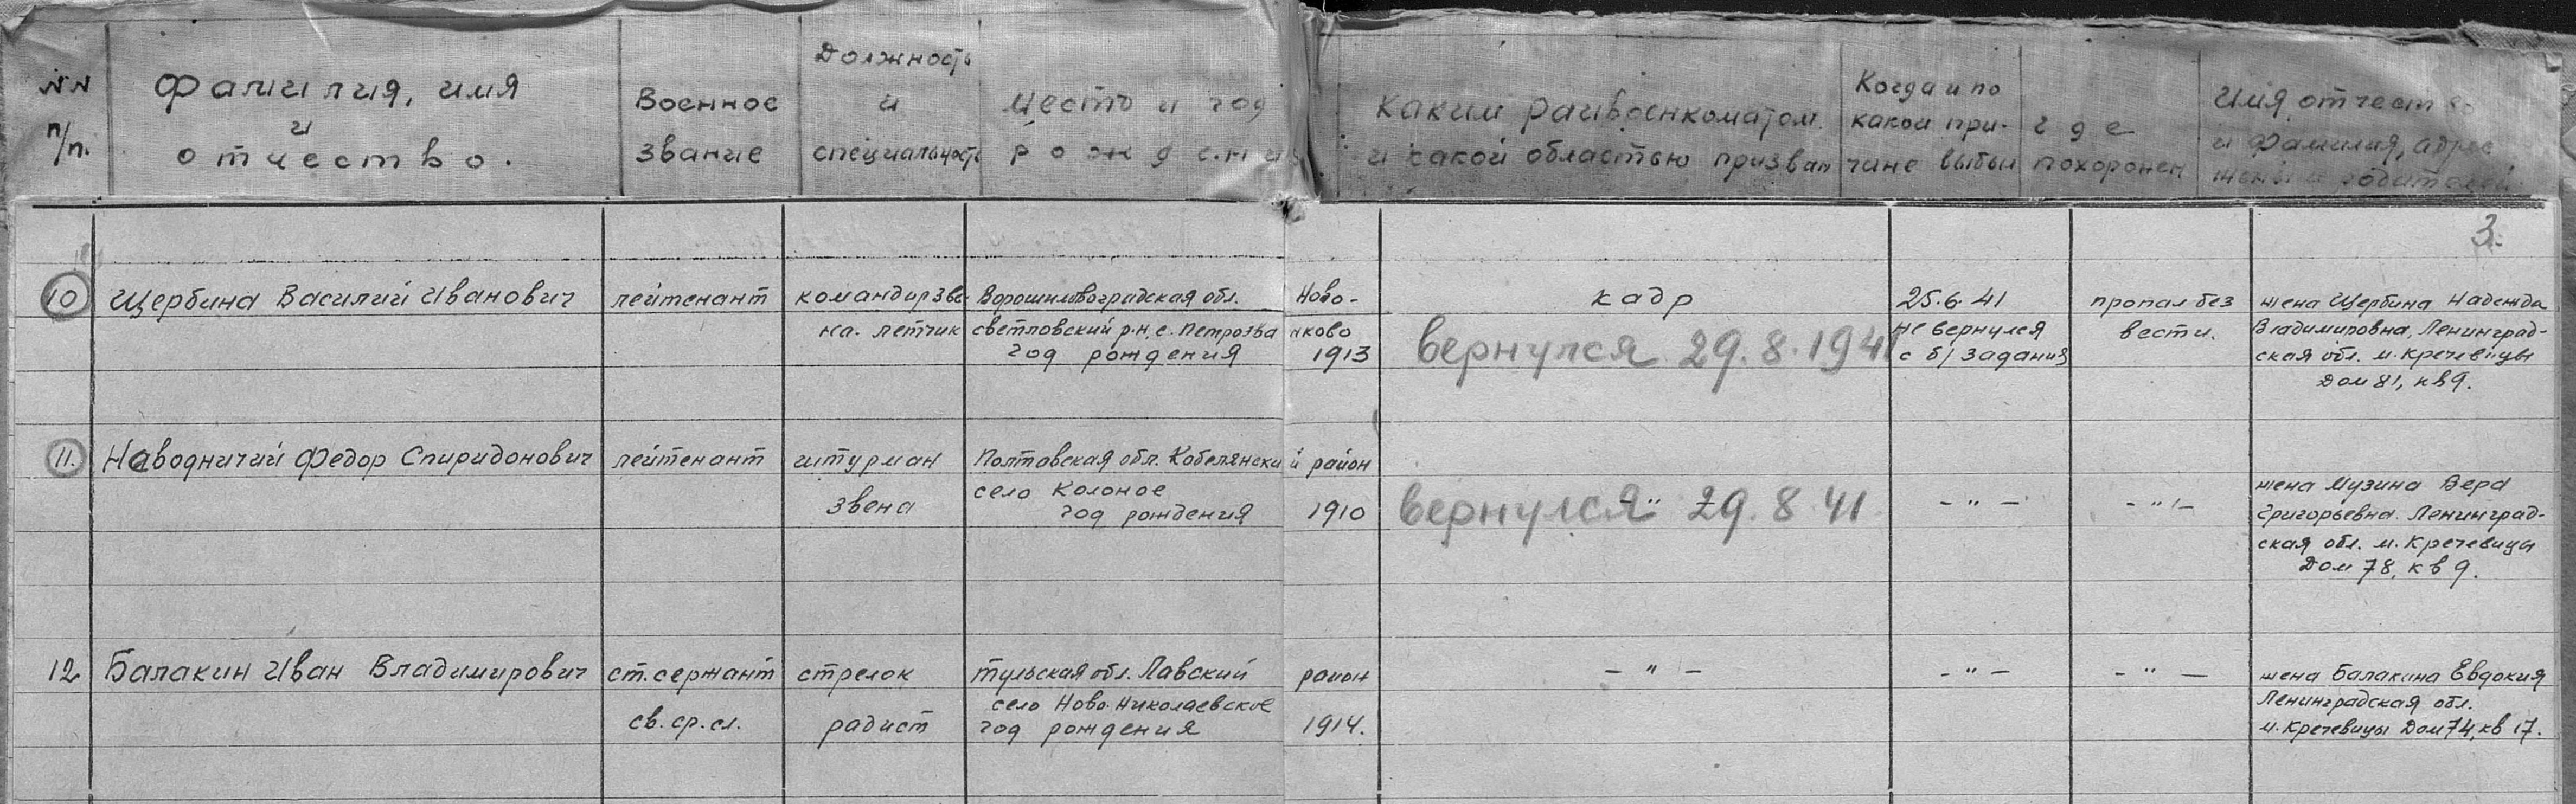 №№ п/п.
Фамилия, имя
и
отчество.
Военное
звание
Должность
и
специальность
Место и год
рождения
Каким райвоенкоматом
и какой областью призван
Когда и по
какой при-
чине выбыл
где
похоронен
Имя отчество
и фамилия, адрес
жены и родителей
3.
10
Щербина Василий Иванович
лейтенант
командир зве-
на. летчик
Ворошиловградская обл. Ново-
светловский р-н, с. Петрозванково
год рождения 1913
кадр
вернулся 29.8.1941
25.6.41
не вернулся
с б/задания
пропал без
вести.
жена Щербина Надежда
Владимировна, Ленинград-
ская обл. м. Кречевицы
Дом 81, кв 9.
11.
Наводничий Федор Спиридонович
лейтенант
штурман
звена
Полтавская обл. Кобелянский район
село Колоное
год рождения 1910
-"-
вернулся 29.8.41
-"-
-"-
жена Музина Вера
Григорьевна. Ленинград-
ская обл. м. Кречевицы
Дом 78, кв 9.
12
Балакин Иван Владимирович
ст. сержант
св. ср. сл.
стрелок
радист
Тульская обл. Лавский район
село Ново-Николаевское
год рождения 1914.
-"-
-"-
-"-
жена Балакина Евдокия
Ленинградская обл.
м. Кречевицы Дом 74, кв 17.